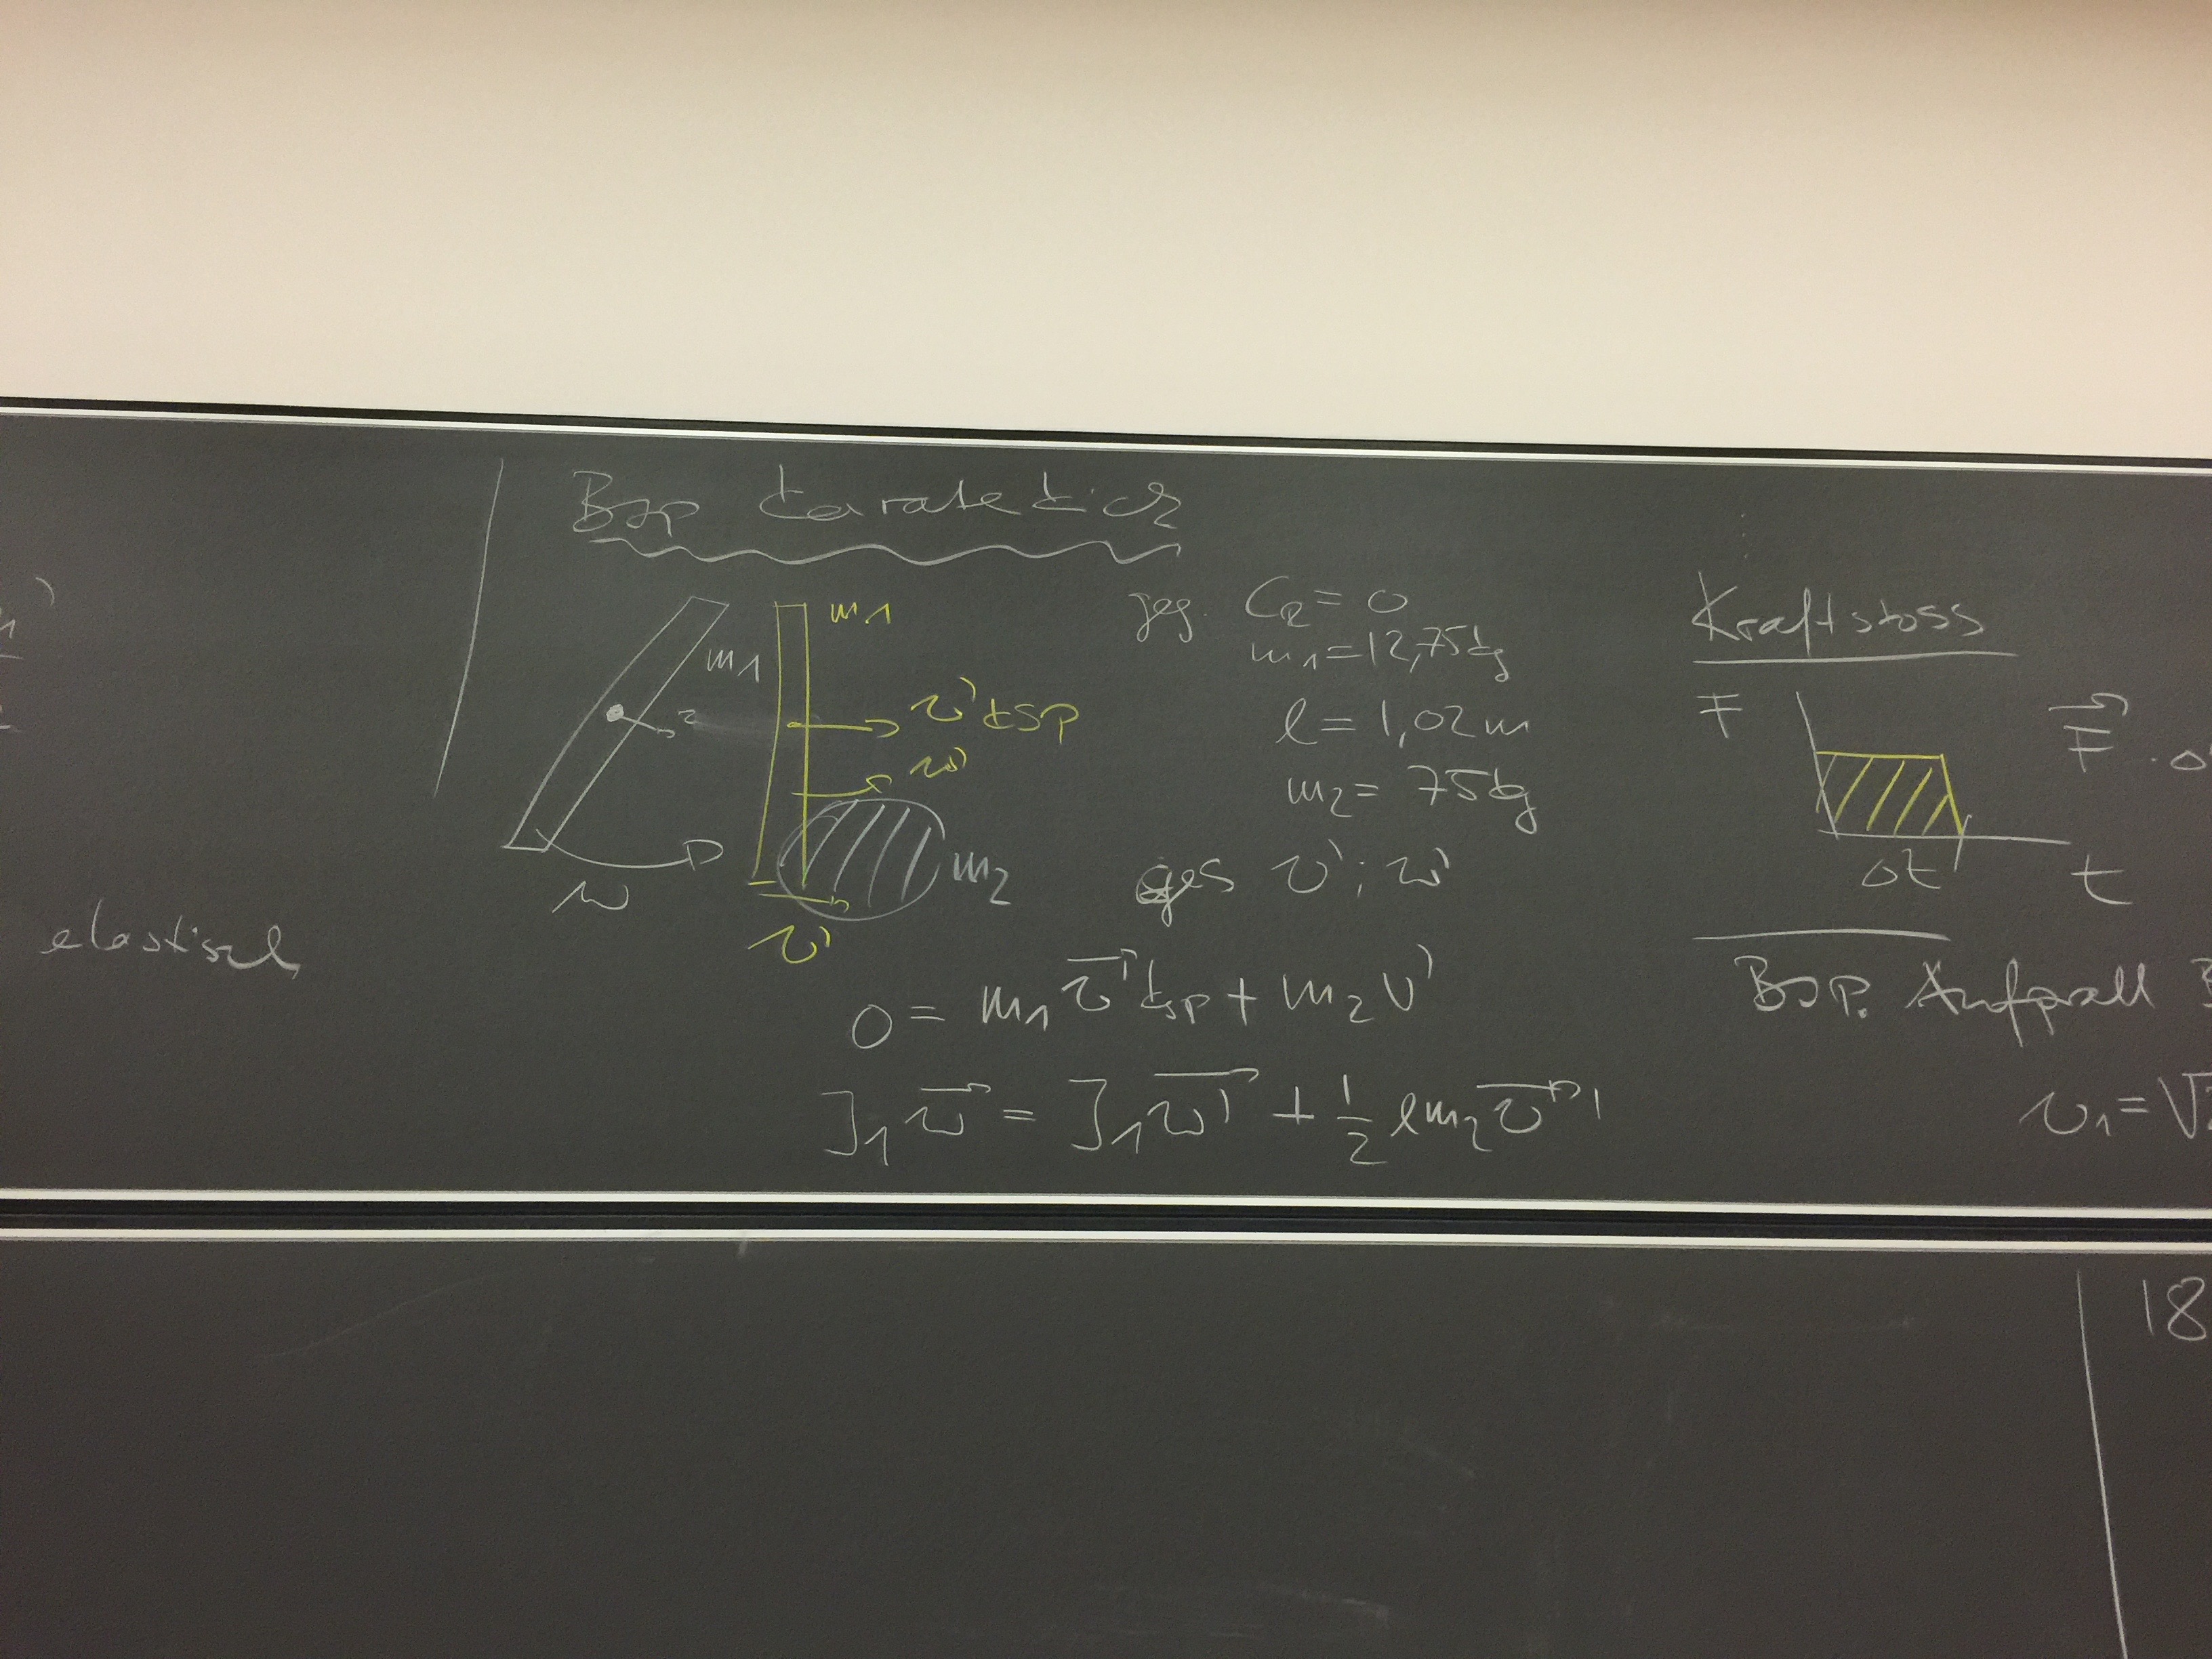 elastisch
Bsp Karatekick
m1
m1
v' KSP
ω'
m2
ω
v'
geg. CR = 0
m1 = 12,75 kg
l = 1,02 m
m2 = 75 kg
ges v'; ω'
0 = m1 v' KSP + m2 v'
J1 ω = J1 ω' + 1/2 l m2 v'
Kraftstoss
F
F ·
Δt
t
BSP. Aufprall
v1 = √
18